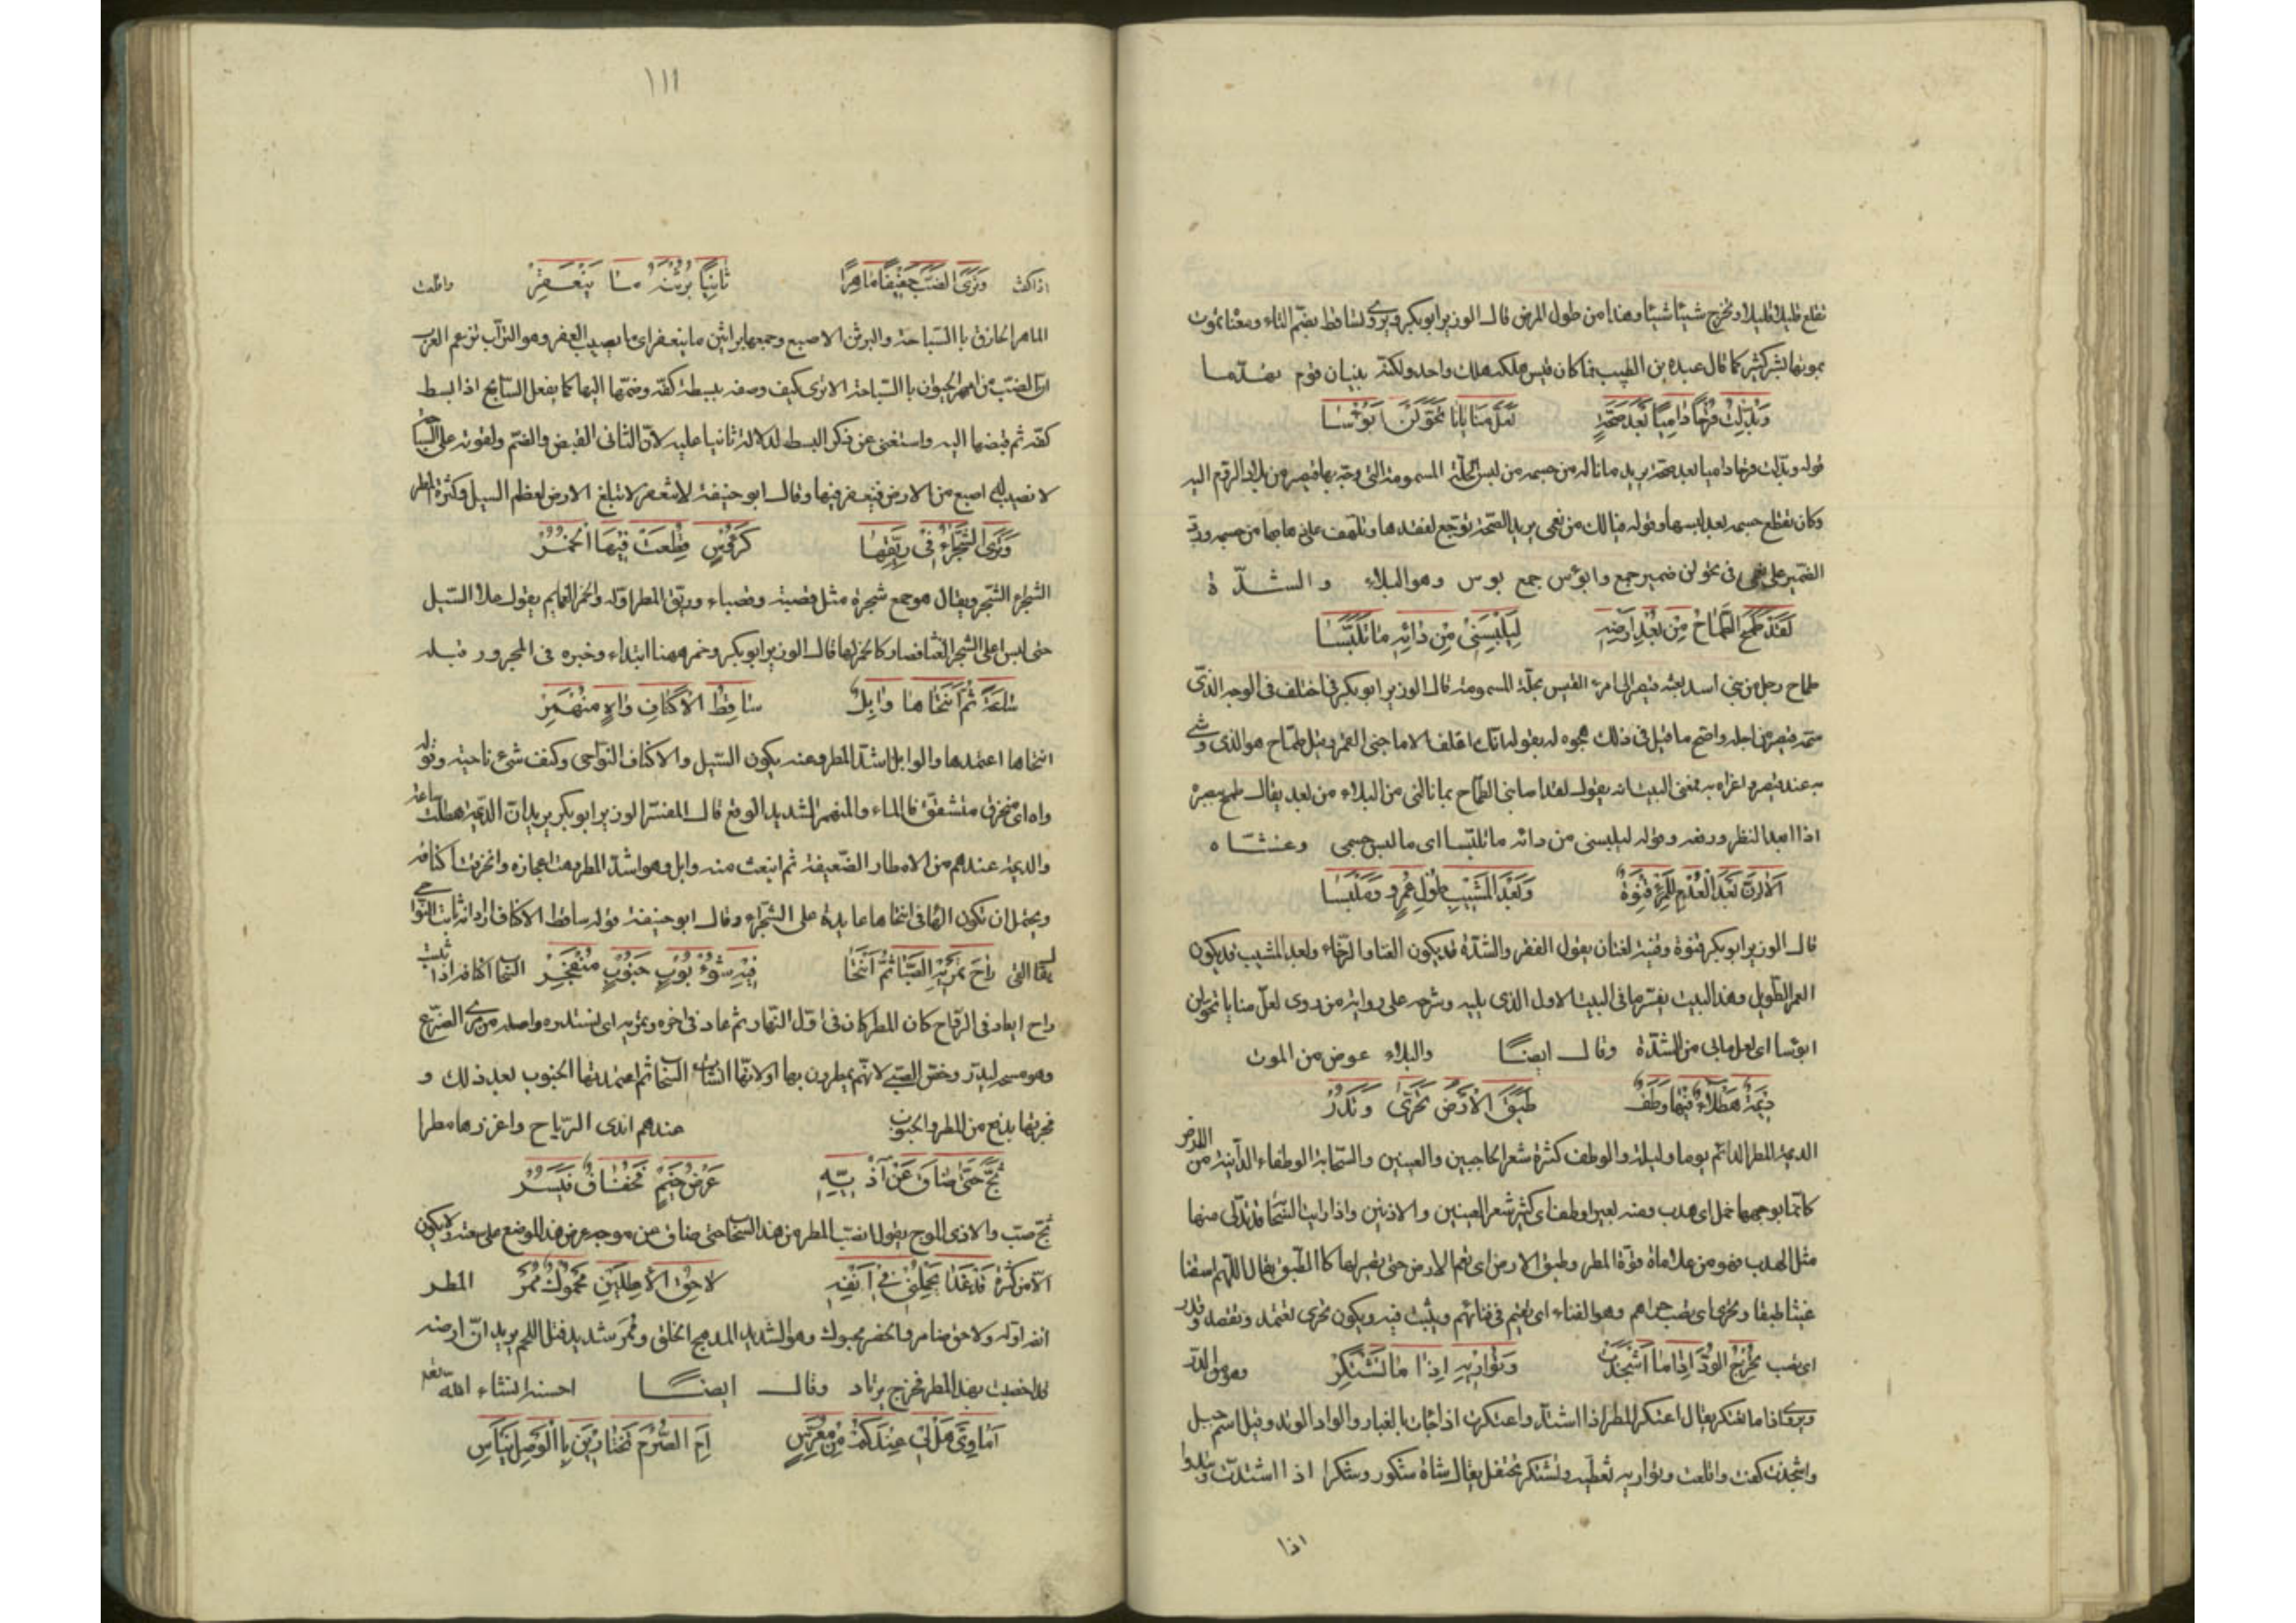 تقلع قليلا قليلا وتخرج شيئا شيئا وهذا من طول المرض قال الوزير ابوبكر ويروى تساقط بضم التاء ومعناه يموت
بموتها بشر كثير كما قال عبدة بن الطبيب فما كان قيس هلكه هلك واحد ولكنه بنيان قوم تهدما
وَبُدِّلْتُ قَرْحًا دَامِيًا بَعْدَ صِحَّةٍ لَعَلَّ مَنَايَانَا تَحَوَّلْنَ أَبْؤُسَا
قوله وبدلت قرحا داميا بعد صحة يريد ما ناله من جسمه من لبس الحلة المسمومة التي وجه بها قيصر من بلاد الروم اليه
وكان تقطع جسمه بعد لبسها وقوله فيا لك من نعمى يريد الصحة توجع لفقدها وتلهف على
الضمير على نعمى في تحولن ضمير جمع وابؤس جمع بوس وهو البلاء والشدّة
لَقَدْ طَمَحَ الطَّمَّاحُ مِنْ بُعْدِ أَرْضِهِ لِيُلْبِسَنِي مِنْ دَائِهِ مَا تَلَبَّسَا
طماح رجل من بني اسد بعثه قيصر الى امرء القيس بحلة المسمومة قال الوزير ابوبكر فاختلف في الوجه الذي
سمه قيصر من اجله واصح ما قيل في ذلك هجوه له بقوله انك اقلف الا ما جنى القمر وقيل طماح هو الذي وشى
به عند قيصر واغراه به فمعنى البيت انه يقول لقد اصابني الطماح بما نالني من البلاء من بعد يقال طمح بصره
اذا ابعد النظر ورفعه وقوله ليلبسني من دائه ما تلبسا اى ما لبس جسمي وغشاه
أَلَا إِنَّ بَعْدَ الْعُدْمِ لِلْمَرْءِ قِنْوَةً وَبَعْدَ الْمَشِيبِ طُولَ عُمْرٍ وَمَلْبَسَا
قال الوزير ابوبكر قنوة وقنية لغتان يقول الفقر والشدّة قد يكون الغنا والرخاء وبعد المشيب قد يكون
العمر الطويل وهذا البيت يفسر ما في البيت الاول الذي يليه وشرحه على رواية من روى لعل منايانا تحولن
ابؤسا اى لعل مابي من الشدة والبلاء عوض من الموت وقال ايضًا
دِيمَةٌ هَطْلَاءُ فِيهَا وَطَفٌ طَبَقَ الْأَرْضِ تَحَرَّى وَتَدُرُّ
الديمة المطر الدائم يوما وليلة والوطف كثرة شعر الحاجبين والعينين والسحابة الوطفاء الدانية من الارض
كانما بوجهها خمل اى هدب ومنه بعير اوطف اى كثير شعر العينين والاذنين واذا رايت السحاب قد تدلى منها
مثل الهدب فهو من علاماة قوة المطر وطبق الارض اى تعم الارض حتى يصير لها كالطبق يقال اللهم اسقنا
غيثا طبقا وتحرى اى تصيب حراهم وهو الفناء اى يقيم في فنائهم ويثبت فيه ويكون تحرى تعتمد وتقصد وتدر
اى تصب تُخْرِجُ الْوَدَّ إِذَا مَا أَشْجَذَتْ وَتُوَارِيهِ إِذَا مَا تَشْتَكِرْ
ويروى اذا ما تعتكر يقال اعتكر المطر اذا اشتد واعتكرت اذا جاءت بالغبار والواد الوتد وقيل اسم جبل
واشجذت كفت واقلعت وتواريه تغطيه وتشتكر تحتفل يقال شاة شكور وشكرا اذا اشتدت
اذا
١١١
اذا كفت وَتَرَى الضَّبَّ خَفِيفًا مَاهِرًا ثَانِيًا بُرْثُنَهُ مَا يَنْعَفِرْ واقلعت
الماهر الحاذق بالسباحة والبرثن الاصبع وجمعها براثن ما ينعفر اى ما يصيب العفر وهو التراب تزعم العرب
ان الضب من امهر الحيوان بالسباحة الا ترى كيف وصفه ببسطة كفه وضمها اليها كما يفعل السابح اذا بسط
كفه ثم قبضها اليه واستغنى عن ذكر البسط لدلالة ثانيا عليه لان الثاني القبض والضم ولقوته على السباحة
لا تصيب له اصبع من الارض فينعفر فيها وقال ابو حنيفة لا تنعفر لا تبلغ الارض لعظم السيل وكثرة المطر
وَتَرَى الشَّجْرَاءَ فِي رَيِّقِهَا كَرُءُوسٍ قُطِعَتْ فِيهَا الْخُمُرْ
الشجراء الشجر ويقال هو جمع شجرة مثل قصبة وقصباء وريق المطر اوله والخمر العمايم يقول علا السيل
حتى لبس اعلى الشجر الغثا فصار كالخمر لها قال الوزير ابوبكر وخمر ههنا ابتداء وخبره في المجرور قبله
سَاعَةً ثُمَّ انْتَحَاهَا وَابِلٌ سَاقِطُ الْأَكْنَافِ وَاهٍ مُنْهَمِرْ
انتحاها اعتمدها والوابل اشد المطر وعنه يكون السيل والاكناف النواحى وكنف شئ ناحيته وقوله
واه اى منخرق متشقق بالماء والمنهمر الشديد الوقع قال المفسر الوزير ابوبكر يريد ان الديمة هطلت ساعة
والديمة عندهم من الامطار الضعيفة ثم انبعث منه وابل وهو اشد المطر
ويحتمل ان تكون الها في انتحاها عايدة على الشجراء وقال ابو حنيفة قوله ساقط الاكناف اراد انه ثابت النواحى
رَاحَ تَمْرِيهِ الصَّبَا ثُمَّ انْتَحَى فِيهِ شُؤْبُوبُ جَنُوبٍ مُنْفَجِرْ
راح اى عاد في الرواح كان المطر كان في اول النهار ثم عاد في اخره وتمريه اى تستدره واصله من مرى الضرع
وهو مسحه ليدر وخص الصبى لانهم يمطرون بها ثم اعتمدتها الجنوب بعد ذلك و
فجرتها بدفع من المطر والجنوب عندهم اندى الرياح واغزرها مطرا
ثَجَّ حَتَّى ضَاقَ عَنْ آذِيِّهِ عَرْضُ خَيْمٍ فَخُفَافٍ فَيُسُرْ
ثج صب والاذى الموج يقول انصب المطر من هذا السحاب حتى ضاق عن موجه عرض هذا الموضع على سعته ولا يكون
الا من كثرة قَدْ غَدَا يَحْمِلُنِي فِي أَنْفِهِ لَاحِقُ الْأَطِلَيْنِ مَحْبُوكٌ مُمَرْ المطر
انفه اوله ولاحق ضامر ومحبوك وهو الشديد المدمج الخلق وممر شديد فتل اللحم يريد ان ارضه
لما خصبت بهذا المطر فخرج يرتاد وقال ايضًا احسنه انشاء الله تعالى
أَمَاوِيَّ هَلْ لِي عِنْدَكُمْ مِنْ مُعَرَّسٍ أَمِ الصَّرْمَ تَخْتَارِينَ بِالْوَصْلِ نَيْأَسِ